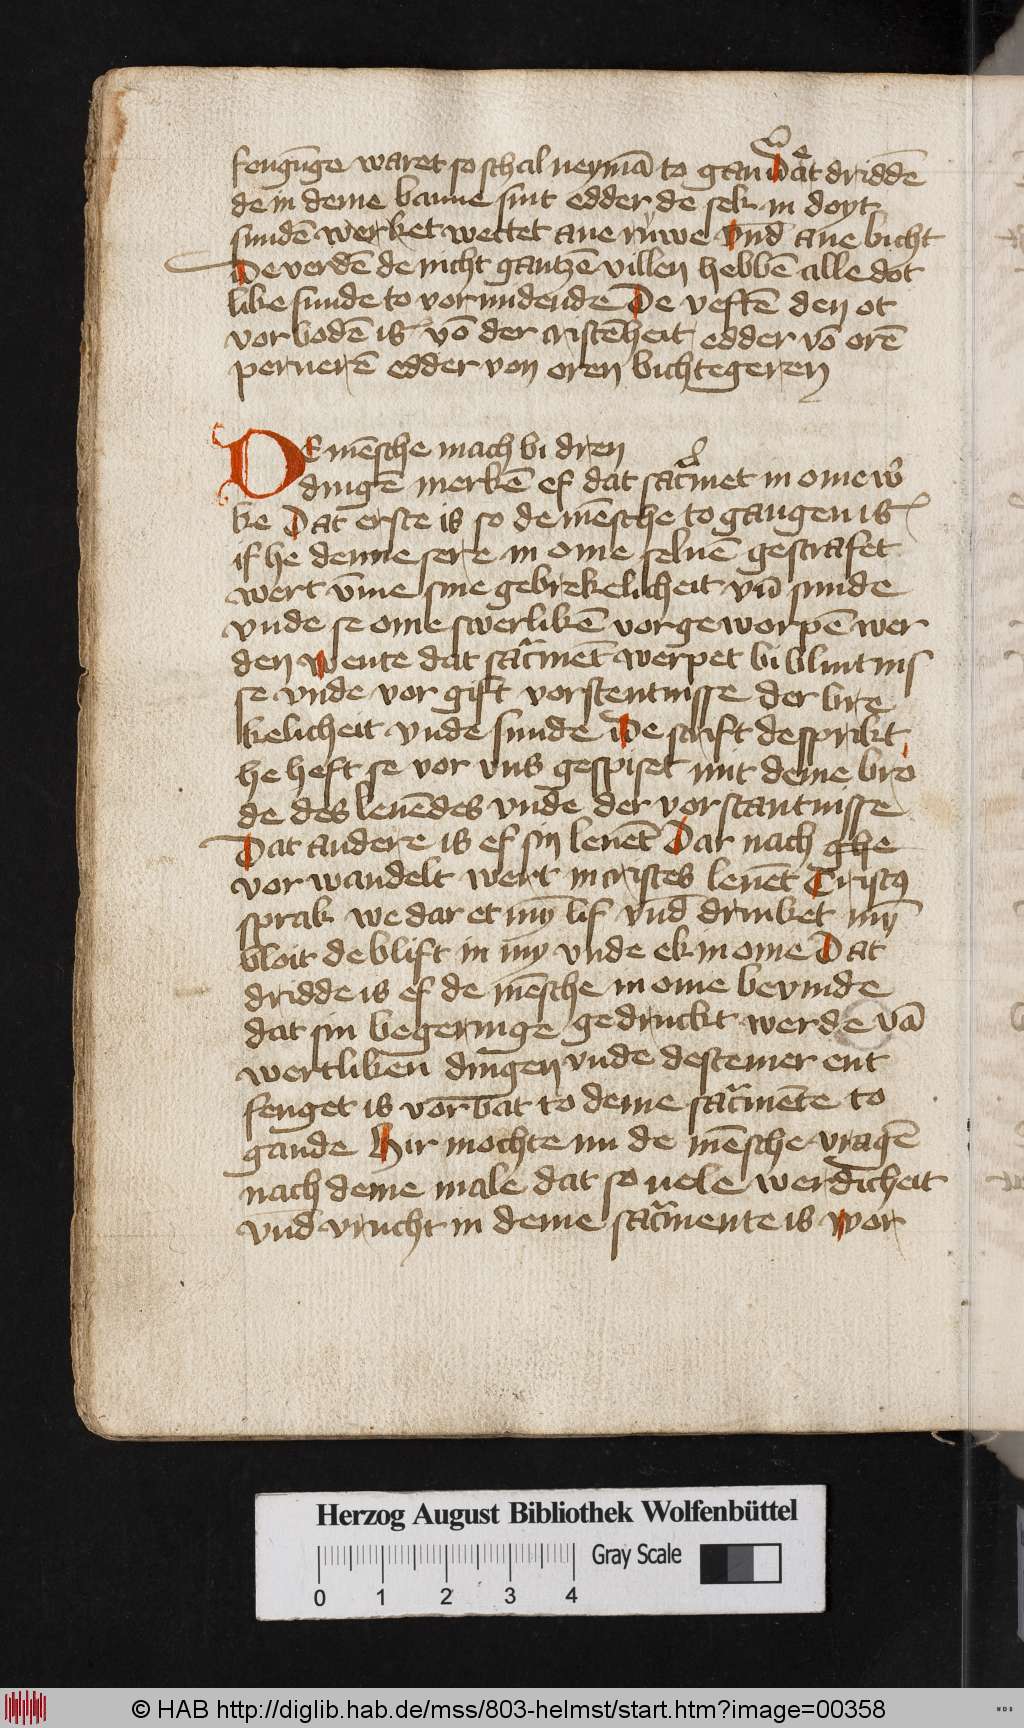 fengūge waret so schal neymā to gan Dat driddē
de in deme banne sint edder de sek in doyt
sundē werket wettet ane ruwe Vnd ane bicht
De verdē de nicht gantzē villen hebbē alle dot
like sunde to vormidende De veftē den ot
vorbodē is vō der cristēheit edder vō orē
pernerē edder von oren bichtegeren
DE mēsche mach bi dren
dingē merkē ef dat sacmēt in ome w
ke Dat erste is so de mēsche to gangen is
if he denne sere in ome seluē gestrafet
wert vme sine gebrekelicheit vn̄ sunde
vnde se ome swerlikē vorgeworpē wer
den Wente dat sacmēt werpet bi blintnis
se vnde vor gift vorstentnisse der bre
kelicheit vnde sunde De scrift de sprikt
he heft se vor vns gespiset mit deme bro
de des leuēdes vnde der vorstantnisse
Dat andere is ef sin leuēt Dar nach ghe
vorwandelt wert in cristes leuēt Cristꝯ
sprak we dar et mȳ lif vnd drinket mȳ
bloit de blift in my vnde ek in ome Dat
dridde is ef de mēsche in ome bevinde
dat sin begeringe gedruckt werde vā
wertliken dingen vnde deste mer ent
fenget is vorbat to deme sacmēte to
gande Hir mochte nu de mēsche vragē
nach deme male dat so vele werdicheit
vnd vrucht in deme sacmente is Wor
Herzog August Bibliothek Wolfenbüttel
Gray Scale
0 1 2 3 4
© HAB http://diglib.hab.de/mss/803-helmst/start.htm?image=00358